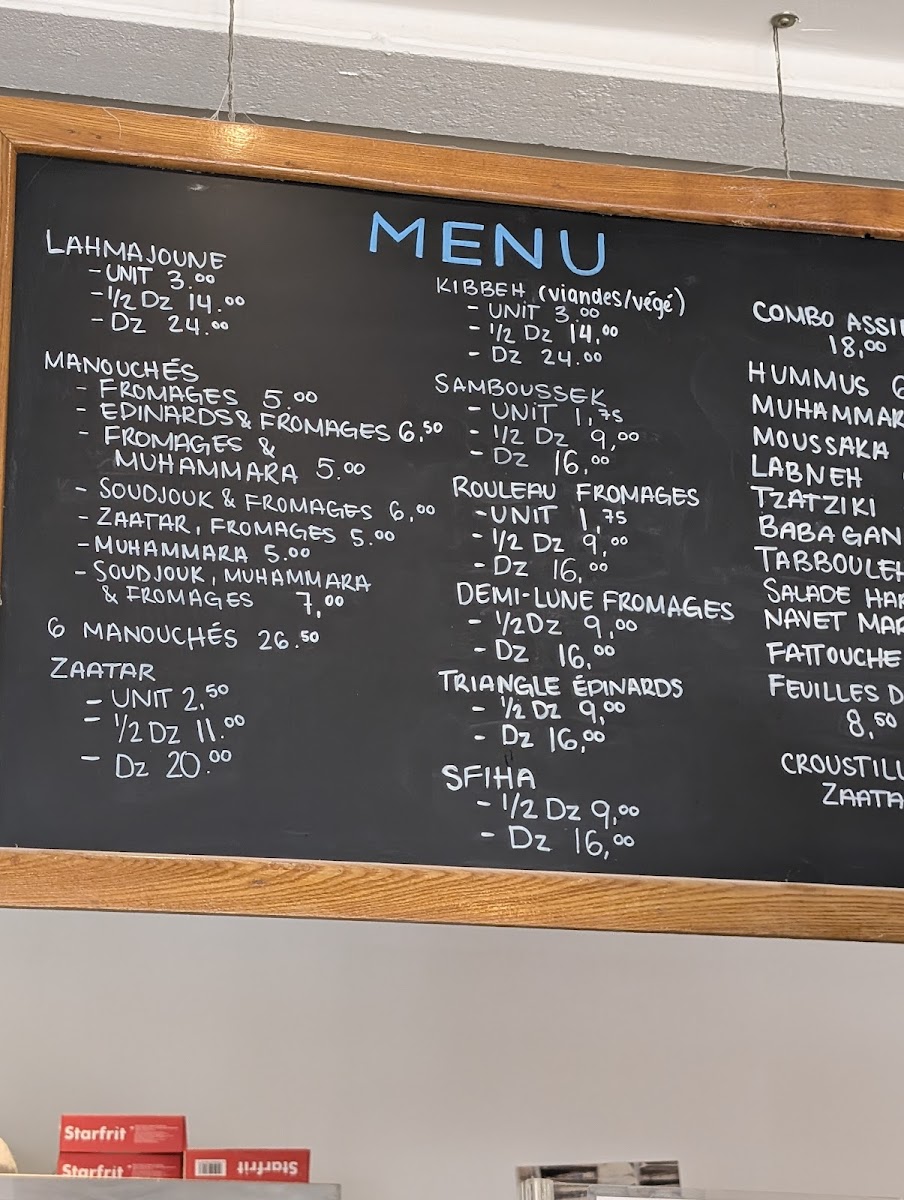 MENU
LAHMAJOUNE
- UNIT 3.00
- 1/2 Dz 14.00
- Dz 24.00
MANOUCHÉS
- FROMAGES 5.00
- EDINARDS & FROMAGES 6.50
- FROMAGES &
MUHAMMARA 5.00
- SOUDJOUK & FROMAGES 6,00
- ZAATAR, FROMAGES 5.00
- MUHAMMARA 5.00
- SOUDJOUK, MUHAMMARA
& FROMAGES 7,00
6 MANOUCHÉS 26.50
ZAATAR
- UNIT 2,50
- 1/2 Dz 11.00
- Dz 20.00
KIBBEH (viandes/végé)
- UNIT 3.00
- 1/2 Dz 14,00
- Dz 24.00
SAMBOUSSEK
- UNIT 1,75
- 1/2 Dz 9,00
- Dz 16,00
ROULEAU FROMAGES
- UNIT 1,75
- 1/2 Dz 9,00
- Dz 16,00
DEMI-LUNE FROMAGES
- 1/2 Dz 9,00
- Dz 16,00
TRIANGLE ÉPINARDS
- 1/2 Dz 9,00
- Dz 16,00
SFIHA
- 1/2 Dz 9,00
- Dz 16,00
COMBO ASSI
18,00
HUMMUS
MUHAMMAR
MOUSSAKA
LABNEH
TZATZIKI
BABA GAN
TABBOULEH
SALADE HAR
NAVET MAR
FATTOUCHE
FEUILLES D
8,50
CROUSTILL
ZAATA
Starfrit
Starfrit
Starfrit